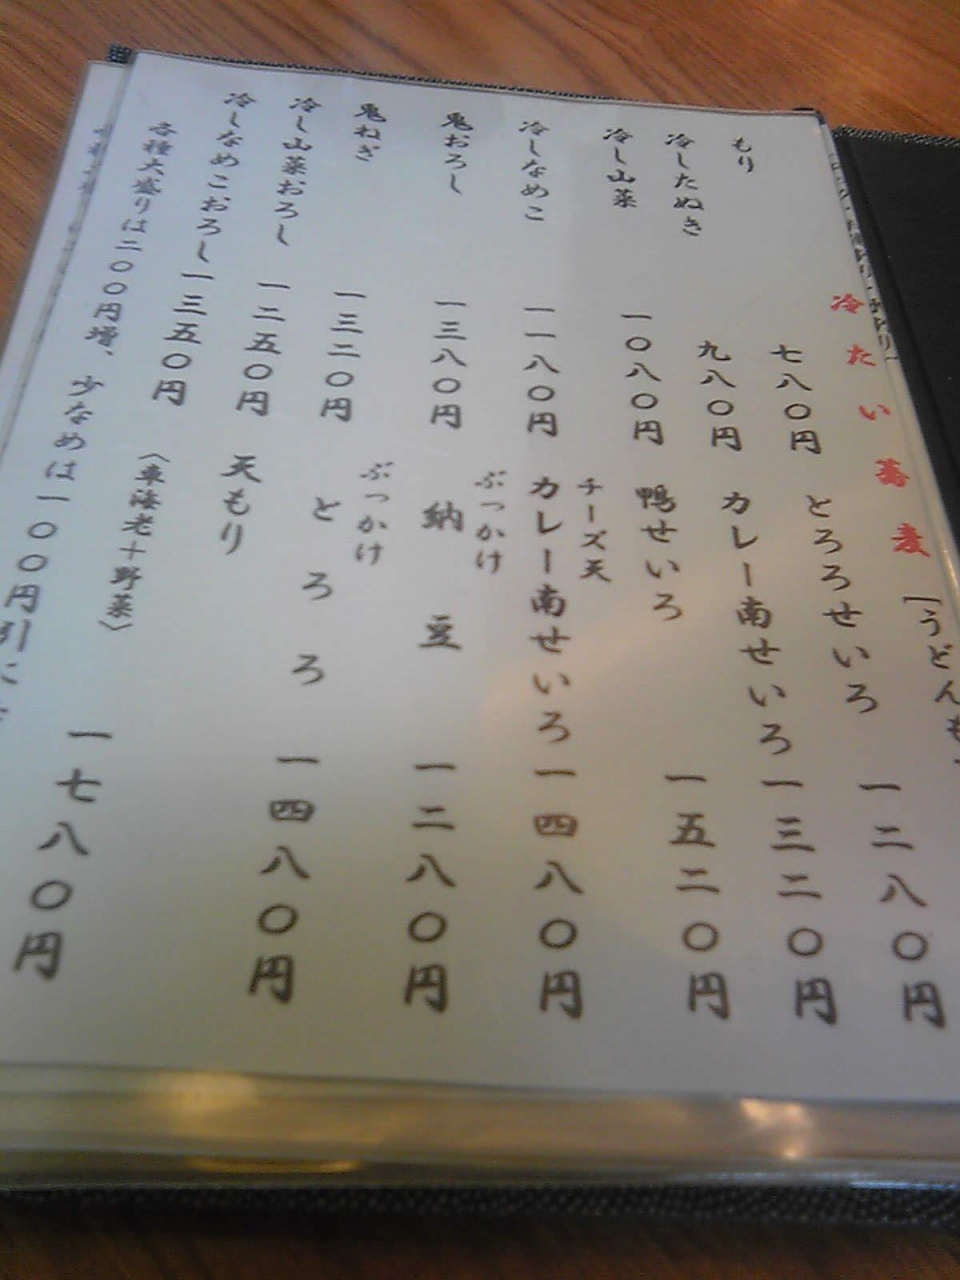 冷たい蕎麦
もり 七八〇円
冷したぬき 九八〇円
冷し山菜 一〇八〇円
冷しなめこ 一一八〇円
鬼おろし 一三八〇円
鬼ねぎ 一三二〇円
冷し山菜おろし 一二五〇円
冷しなめこおろし 一三五〇円
とろろせいろ 一二八〇円
カレー南せいろ 一三二〇円
鴨せいろ 一五二〇円
チーズ天
カレー南せいろ 一四八〇円
ぶっかけ
納豆 一二八〇円
ぶっかけ
とろろ 一四八〇円
天もり 一七八〇円
〈車海老＋野菜〉
各種大盛りは二〇〇円増、少なめは一〇〇円引に